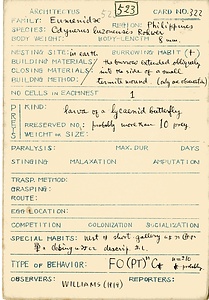 ARCHITECTUS 523 CARD NO. 322
FAMILY: Eumenidæ REGION: Philippines
SPECIES: Odynerus luzonensis Rohwer
BODY WEIGHT: BODY-LENGTH 8 mm.
NESTING SITE: in earth BURROWING HABIT (+)
BUILDING MATERIALS the burrow extended obliquely
CLOSING MATERIALS: into the side of a small
BUILDING METHOD: termite mound.
NO CELLS IN EACH NEST 1
PREY
KIND: larva of a lycaenid butterfly
PRESERVED NO.: probably more than 10 prey.
WEIGHT OR SIZE:
PARALYSIS: MAX. DUR. DAYS
STINGING MALAXATION AMPUTATION
TRASP. METHOD:
GRASPING:
ROUTE:
EGG LOCATION:
COMPETITION COLONIZATION SOCIALIZATION
SPECIAL HABITS: nest of short gallery
TYPE OF BEHAVIOR: FO(PT)
OBSERVERS: REPORTERS:
WILLIAMS (1919)